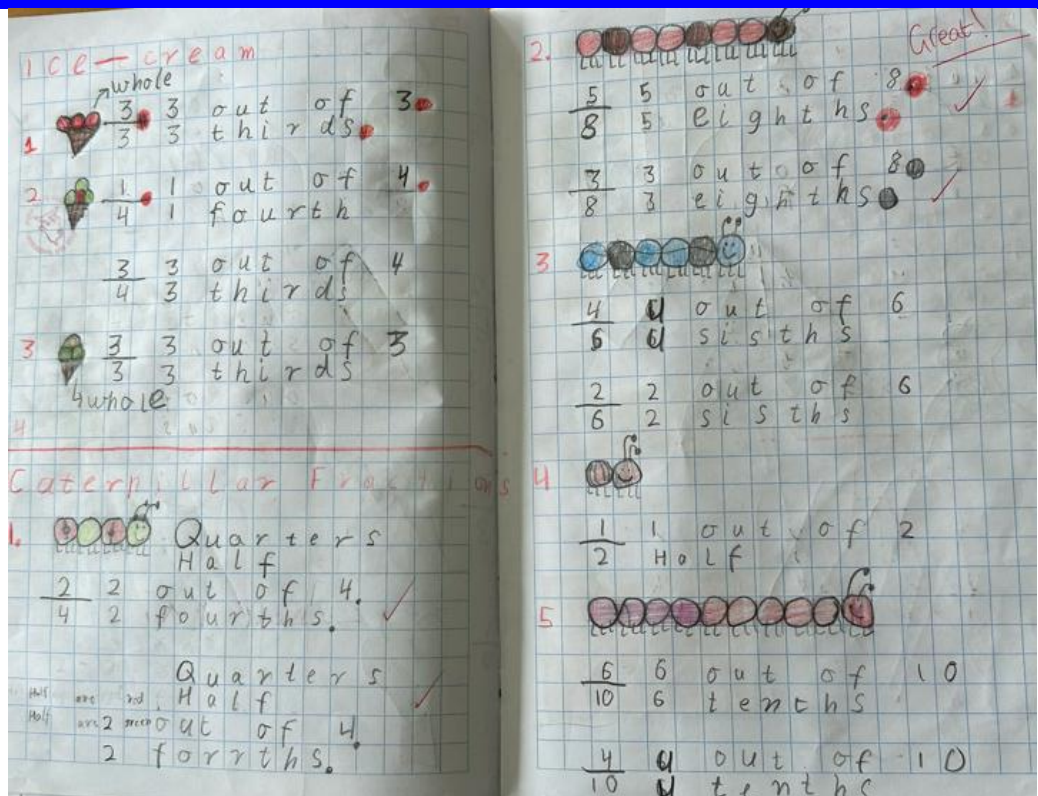 Ice-cream
whole
1 3/3 3 out of 3.
3 thirds.
2 1/4 1 out of 4.
1 fourth
3/4 3 out of 4
3 thirds
3 3/3 3 out of 3
3 thirds
4 whole
4
Caterpillar Fractions
1. Quarters
Half
2/4 2 out of 4.
2 fourths.
Quarters
Half are red. Half
Half are green 2 out of 4.
2 forrths.
2. Great!
5/8 5 out of 8.
5 eighths.
3/8 3 out of 8
3 eighths
3
4/6 4 out of 6
4 sisths
2/6 2 out of 6
2 sisths
4
1/2 1 out of 2
Half
5
6/10 6 out of 10
6 tenths
4/10 4 out of 10
4 tenths